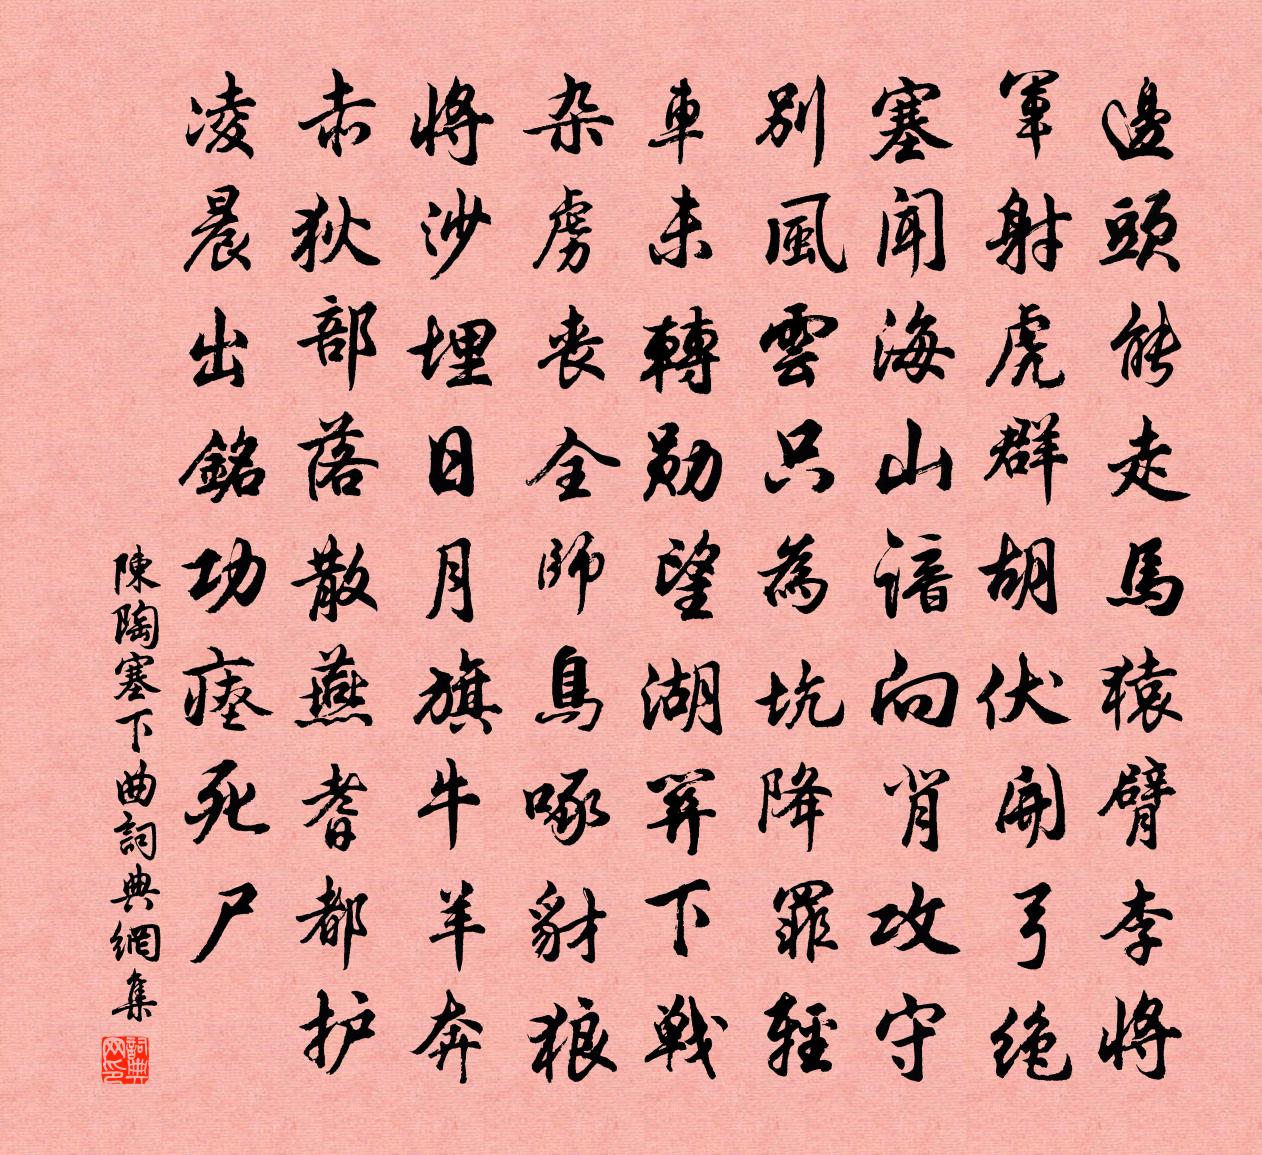 邊頭能走馬猿臂李將
軍射虎群胡伏開弓絕
塞聞海山諳向背攻守
別風雲只為坑降罪輕
車未轉勋望湖関下戦
杂虜喪全師鳥啄豺狼
將沙埋日月旗牛羊奔
赤狄部落散燕耆都护
凌晨出銘功瘞死尸
陳陶塞下曲詞典網集
詞典
网印